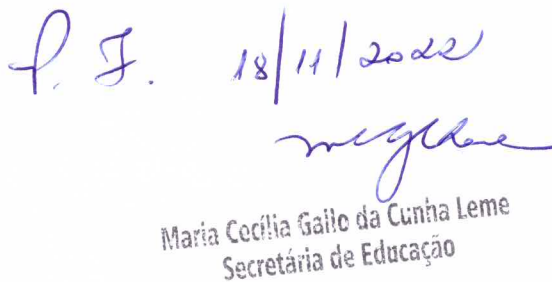 P. F. 18/11/2022
Maria Cecília Gallo da Cunha Leme
Secretária de Educação